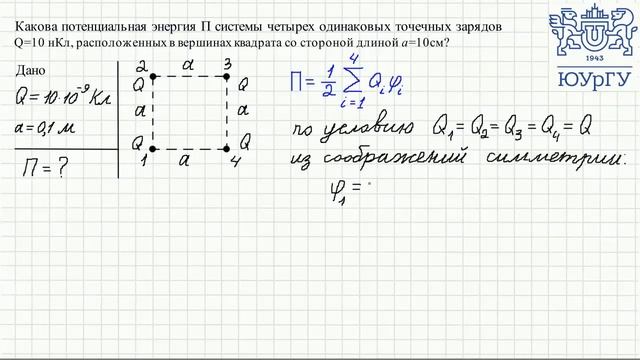 Какова потенциальная энергия П системы четырех одинаковых точечных зарядов
Q=10 нКл, расположенных в вершинах квадрата со стороной длиной a=10см?
Дано
Q = 10·10⁻⁹ Кл
a = 0,1 м
П = ?
2 a 3
Q Q
a a
Q Q
1 a 4
П = 1/2 4 ∑ i=1 Qᵢφᵢ
по условию Q₁ = Q₂ = Q₃ = Q₄ = Q
из соображений симметрии:
φ₁ =
1943
ЮУрГУ